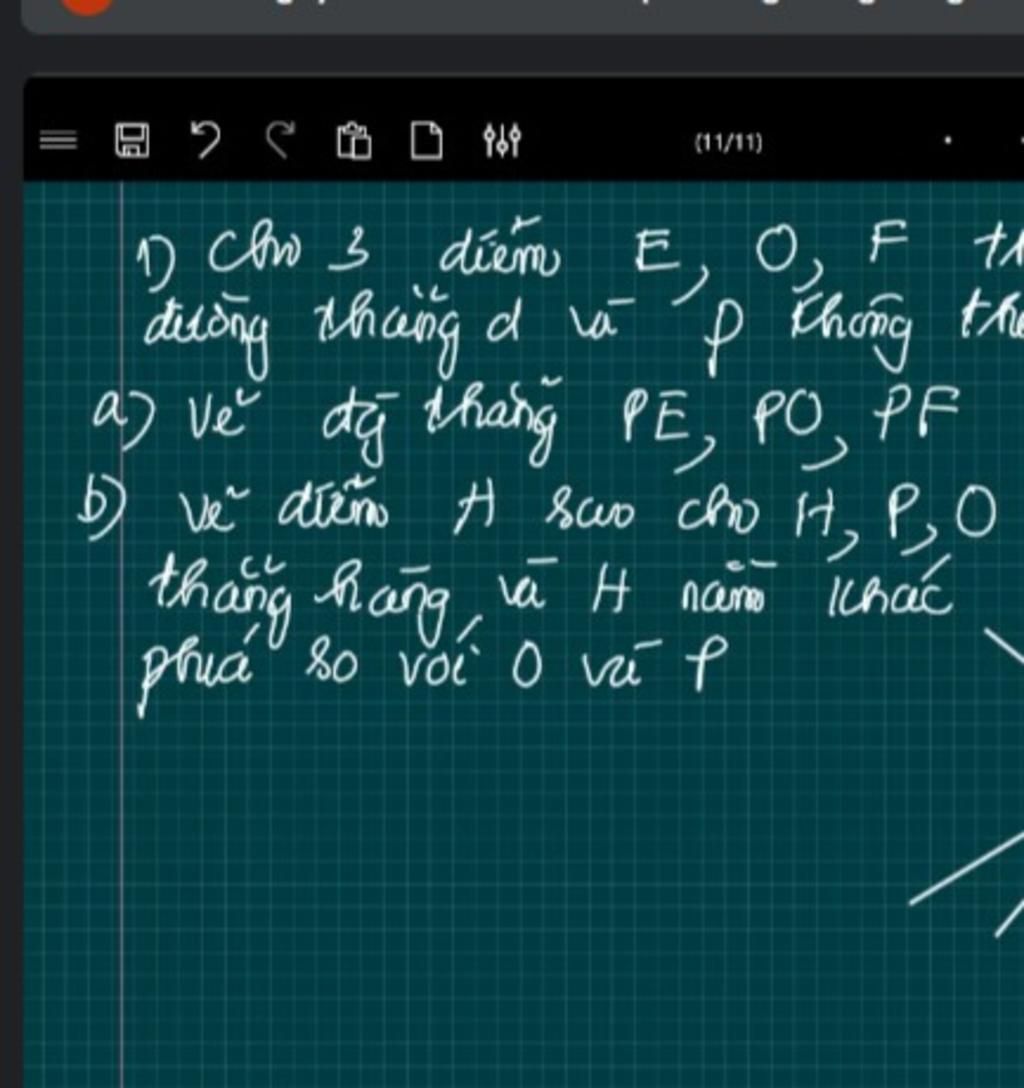 (11/11)
1) Cho 3 điểm E, O, F
đường thẳng d và P không
a) Vẽ đg thẳng PE, PO, PF
b) Vẽ điểm H sao cho H, P, O
thẳng hàng và H nằm khác
phía so với O và P